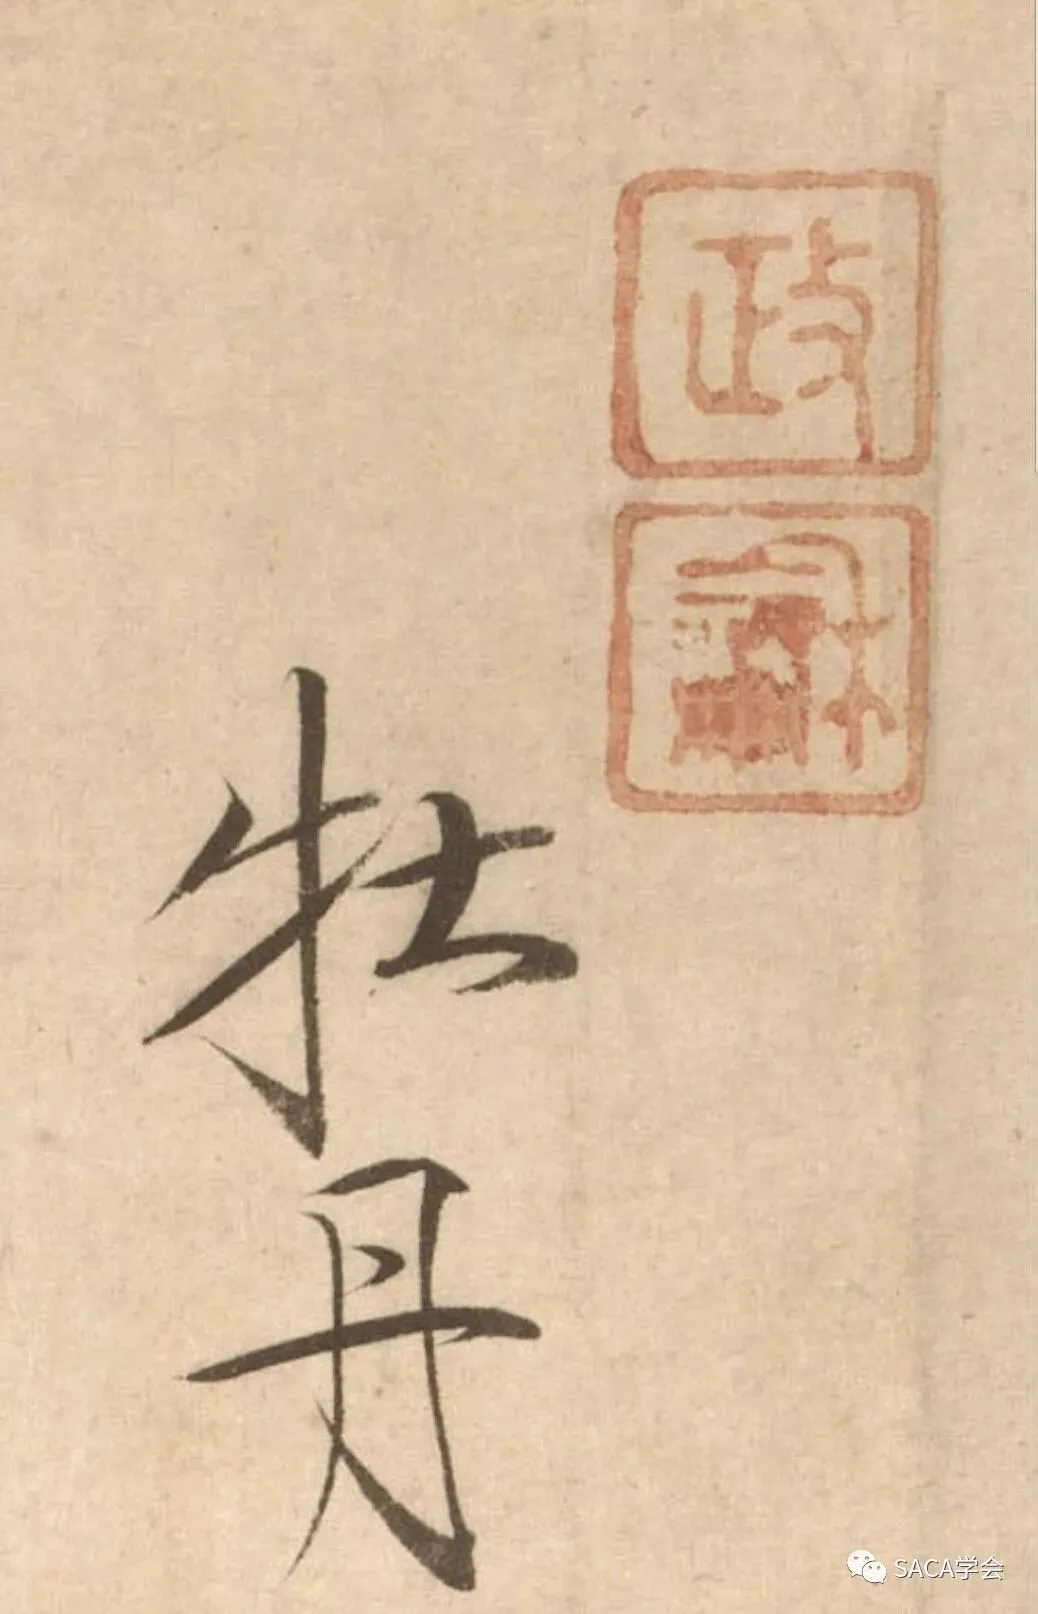 政
龢
牡
丹
SACA学会